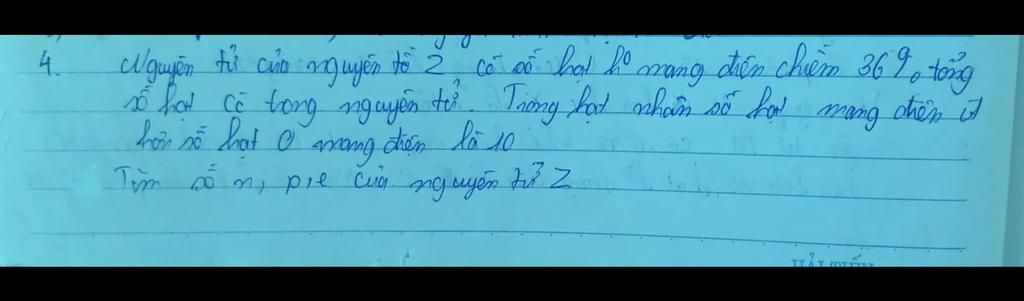 4. Nguyên tử của nguyên tố Z có số hạt k⁰ mang điện chiếm 36% tổng
số hạt có trong nguyên tử. Trong hạt nhân số hạt mang điện ít
hơn số hạt 0 mang điện là 10
Tìm số n, p, e của nguyên tử Z